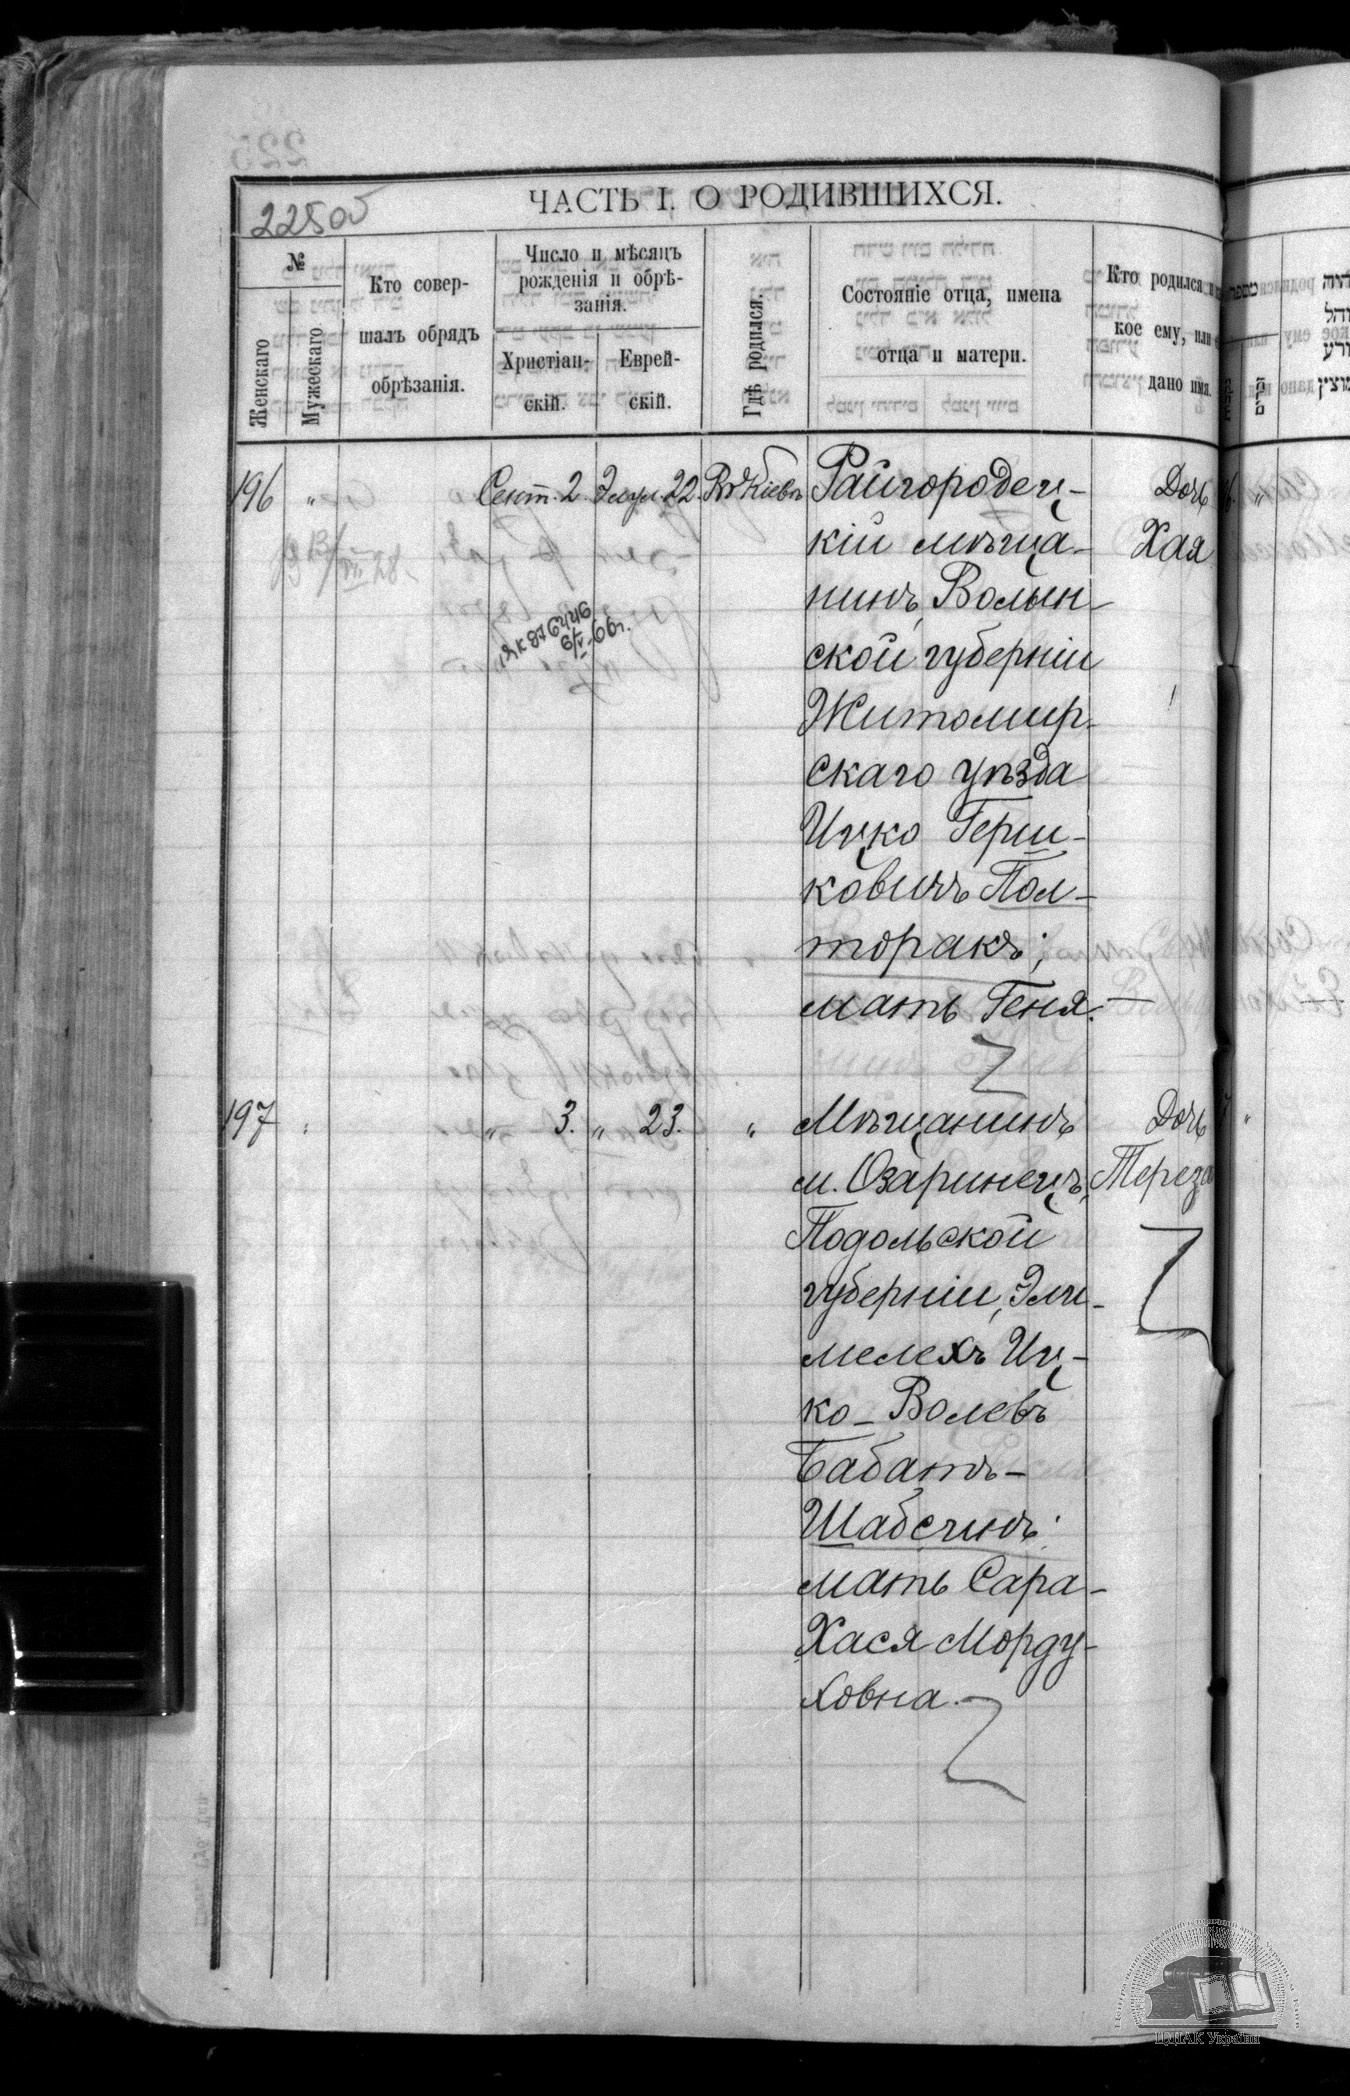 225 об
ЧАСТЬ I. О РОДИВШИХСЯ.
№
Женскаго
Мужескаго
Кто совер-
шалъ обрядъ
обрѣзанія.
Число и мѣсяцъ
рожденія и обрѣ-
занія.
Христіан-
скій.
Еврей-
скій.
Гдѣ родился.
Состояніе отца, имена
отца и матери.
Кто родился и
кое ему, или
дано имя.
196 " Сент. 2. Элул. 22. Въ Кіевѣ Райгородец- Дочь
кій мѣща- Хая
нинъ, Волын-
ской губерніи
Житомир-
скаго уѣзда
Ицко Герш-
ковичъ Пол-
торакъ;
мать Геня.
197 " 3. " 23. " Мѣщанинъ Дочь
м. Озаринецъ, Тереза
Подольской
губерніи, Эли-
мелехъ Иц-
ко-Волевъ
Бабатъ-
Шабсчинъ;
мать Сара-
Хася Морду-
ховна.
ЦДІАК України